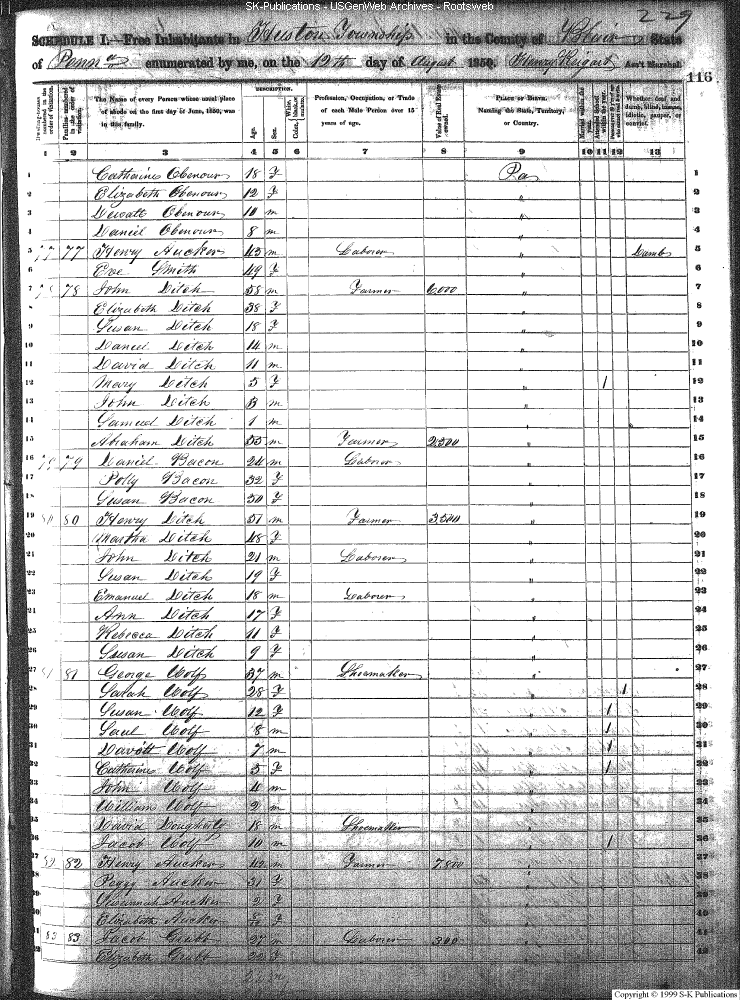 SK-Publications - USGenWeb Archives - Rootsweb
229
SCHEDULE I.—Free Inhabitants in Huston Township in the County of Blair State
of Penna enumerated by me, on the 19th day of August 1850. Ass't Marshal.
116
Dwelling-houses numbered in the order of visitation.
Families numbered in the order of visitation.
The Name of every Person whose usual place of abode on the first day of June, 1850, was in this family.
DESCRIPTION.
Age.
Sex.
Color
Profession, Occupation, or Trade of each Male Person over 15 years of age.
Value of Real Estate owned.
PLACE OF BIRTH. Naming the State, Territory, or Country.
Married within the year.
Whether deaf and dumb, blind, insane, idiotic, pauper, or convict.
1 2 3 4 5 6 7 8 9 10 11 12 13
1 Catharine Obenour 18 F Pa 1
2 Elizabeth Obenour 12 F " 2
3 Obenour 10 m " 3
4 Daniel Obenour 8 m " 4
5 77 77 Henry Aucker 43 m Laborer " Dumb 5
6 Eve Smith 49 F " 6
7 78 78 John Ditch 58 m Farmer 6000 " 7
8 Elizabeth Ditch 38 F " 8
9 Susan Ditch 18 F " 9
10 Daniel Ditch 14 m " 10
11 David Ditch 11 m " 11
12 Mary Ditch 5 F " 1 12
13 John Ditch 3 m " 13
14 Samuel Ditch 1 m " 14
15 Abraham Ditch 55 m Farmer 2,500 " 15
16 79 79 Daniel Bacon 24 m Laborer " 16
17 Polly Bacon 32 F " 17
18 Susan Bacon 50 F " 18
19 80 80 Henry Ditch 51 m Farmer 3,500 " 19
20 Martha Ditch 48 F " 20
21 John Ditch 21 m Laborer " 21
22 Susan Ditch 19 F " 22
23 Emanuel Ditch 18 m Laborer " 23
24 Ann Ditch 17 F " 24
25 Rebecca Ditch 11 F " 25
26 Susan Ditch 9 F " 26
27 81 81 George Wolf 37 m Shoemaker " 27
28 Sarah Wolf 28 F " 1 28
29 Susan Wolf 12 F " 1 29
30 Saul Wolf 8 m " 1 30
31 Wolf 7 m " 1 31
32 Catharine Wolf 5 F " 1 32
33 John Wolf 4 m " 33
34 William Wolf 2 m " 34
35 David Dougherty 18 m Shoemaker " 35
36 Jacob Wolf 10 m " 1 36
37 82 82 Henry Aucker 42 m Farmer 7800 " 37
38 Peggy Aucker 31 F " 38
39 Susannah Aucker 2 F " 39
40 Elizabeth Aucker F " 40
41 83 83 Jacob Grabt 27 m Laborer 300 " 41
42 Elizabeth Grabt 22 F " 42
Copyright © 1999 S-K Publications